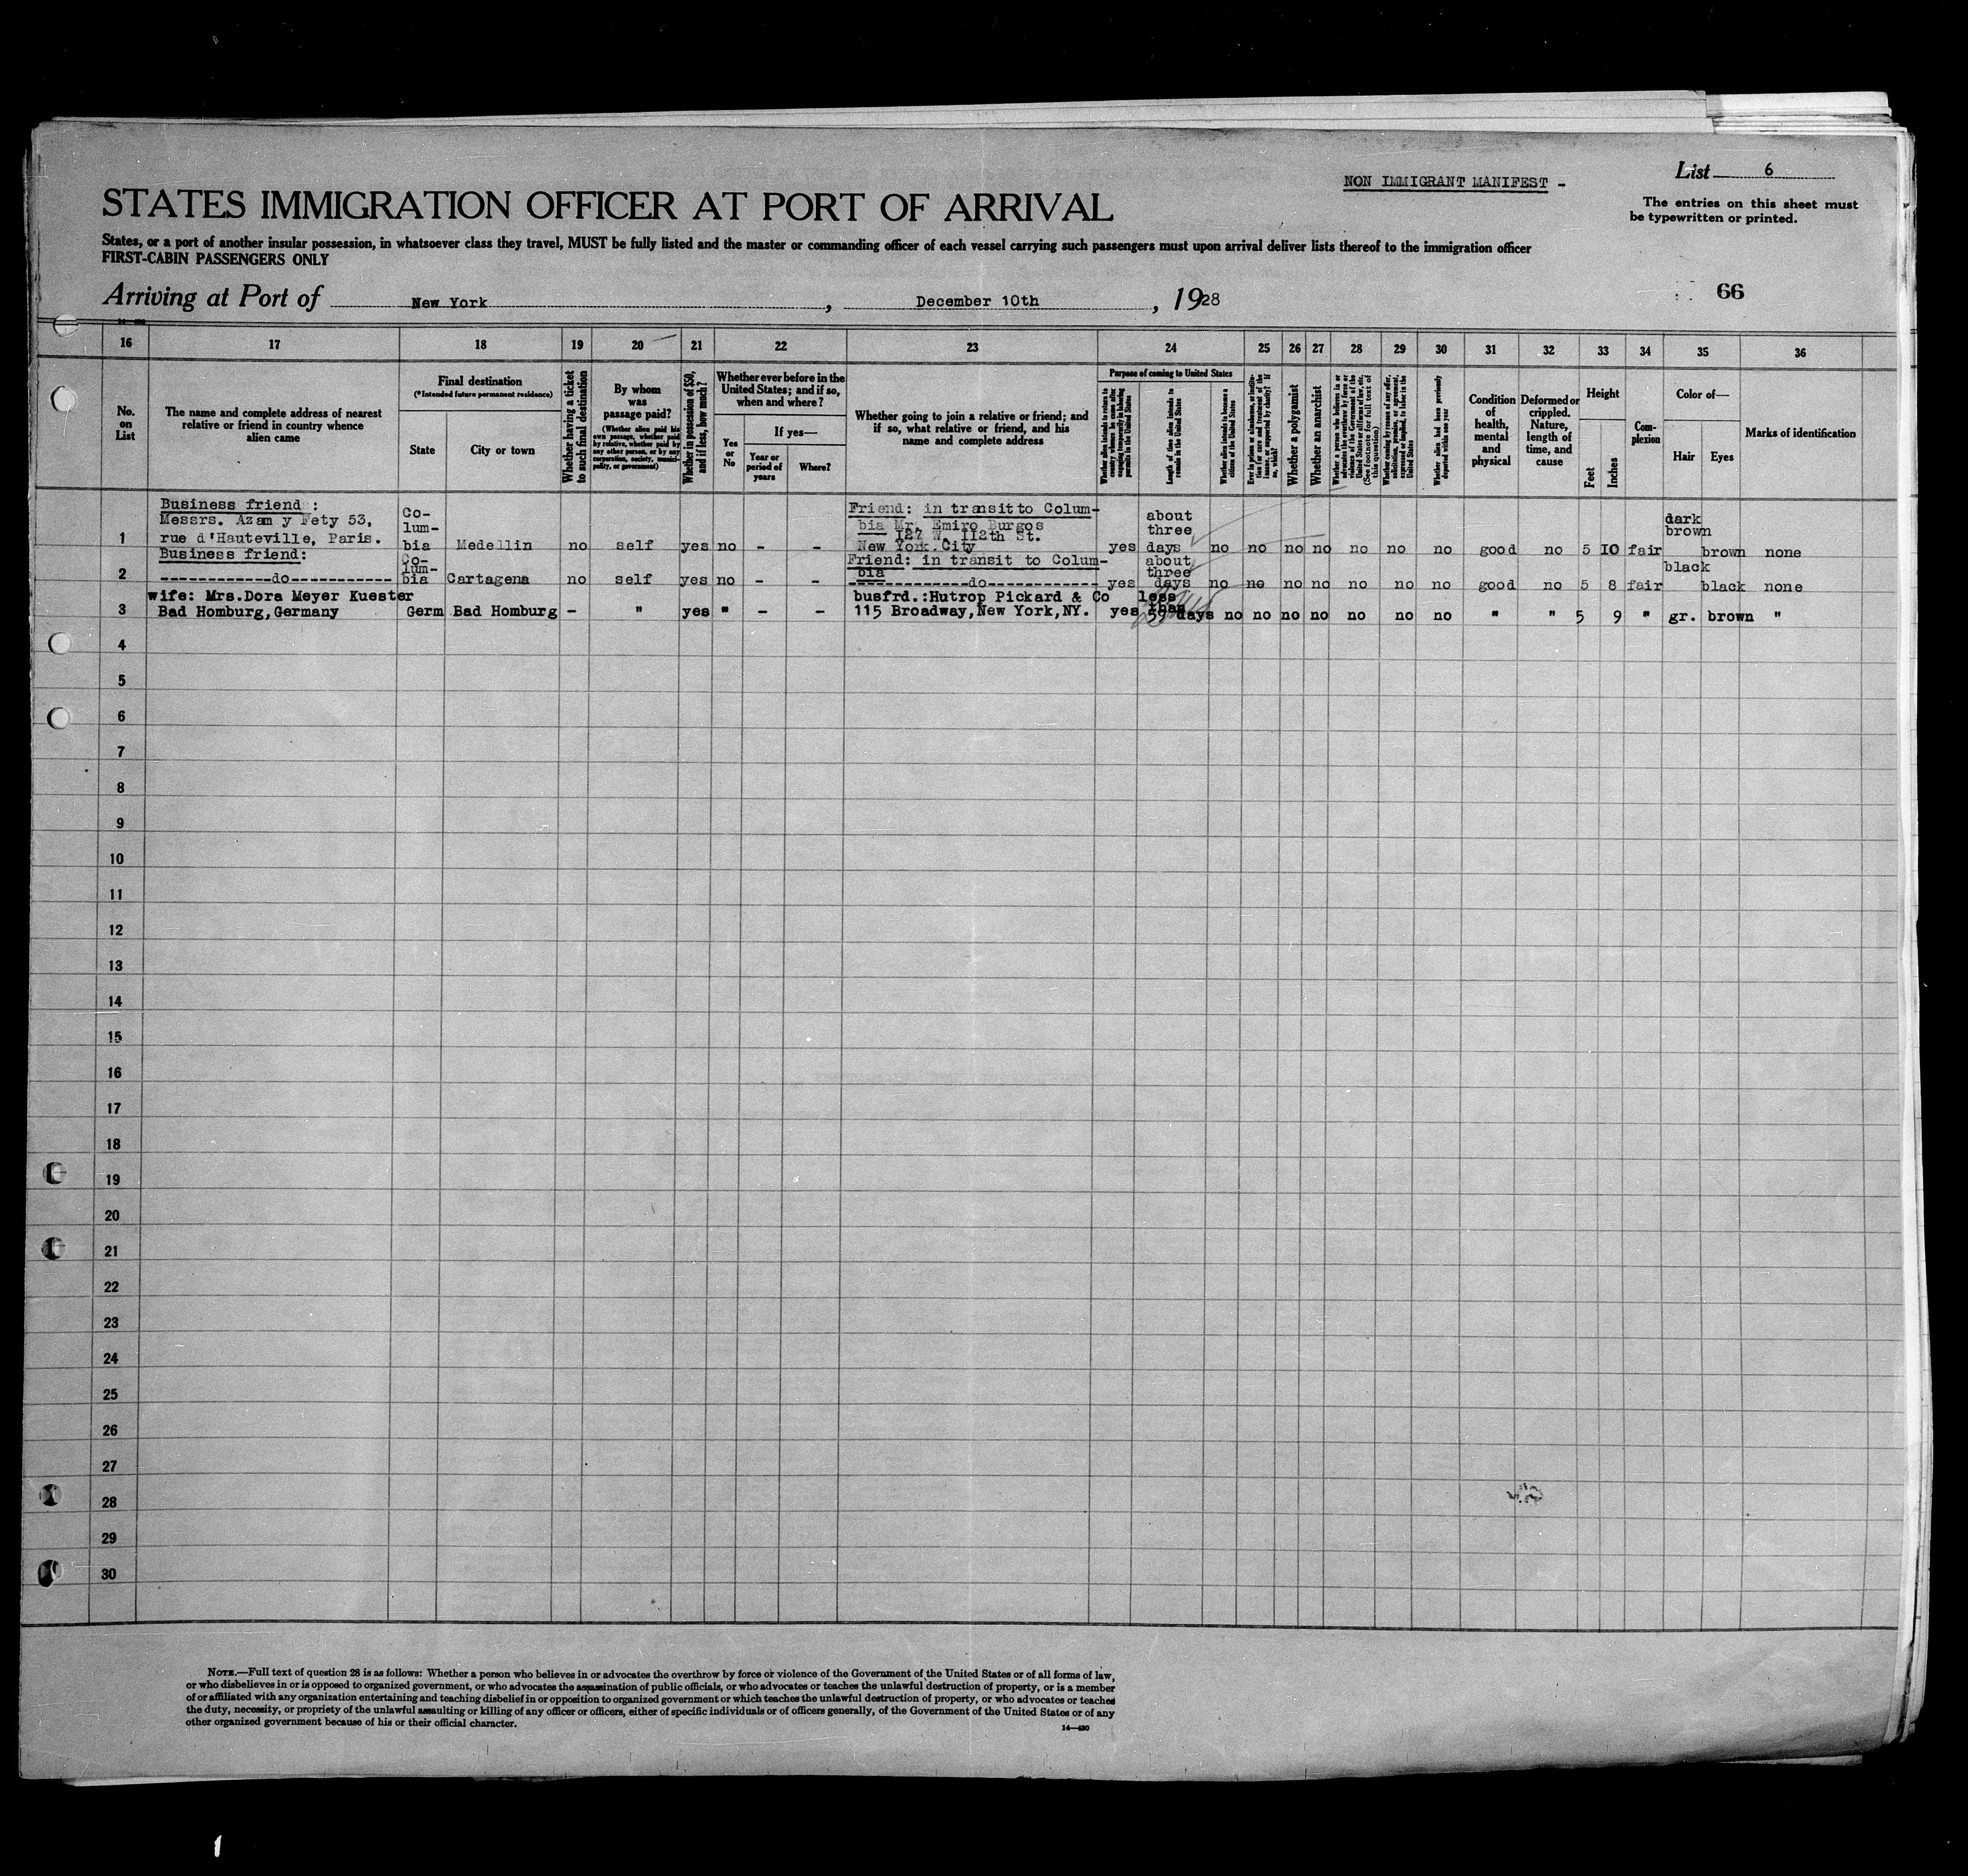 NON IMMIGRANT MANIFEST -
List 6
STATES IMMIGRATION OFFICER AT PORT OF ARRIVAL
The entries on this sheet must
be typewritten or printed.
States, or a port of another insular possession, in whatsoever class they travel, MUST be fully listed and the master or commanding officer of each vessel carrying such passengers must upon arrival deliver lists thereof to the immigration officer
FIRST-CABIN PASSENGERS ONLY
Arriving at Port of New York, December 10th, 1928
66
16 17 18 19 20 21 22 23 24 25 26 27 28 29 30 31 32 33 34 35 36
No.
on
List
The name and complete address of nearest
relative or friend in country whence
alien came
Final destination
(*Intended future permanent residence)
State
City or town
Whether having a ticket
to such final destination
By whom
was
passage paid?
(Whether alien paid his
own passage, whether paid
by relative, whether paid by
any other person, or by any
corporation, society, munici-
pality, or government)
Whether in possession of $50,
and if less, how much?
Whether ever before in the
United States; and if so,
when and where?
Yes
or
No
If yes—
Year or
period of
years
Where?
Whether going to join a relative or friend; and
if so, what relative or friend, and his
name and complete address
Purpose of coming to United States
Whether alien intends to return to
country whence he came after
engaging temporarily in laboring
pursuits in the United States
Length of time alien intends to
remain in the United States
Whether alien intends to become a
citizen of the United States
Ever in prison or almshouse, or institu-
tion for care and treatment of the
insane, or supported by charity? If
so, which?
Whether a polygamist
Whether an anarchist
Whether a person who believes in or
advocates the overthrow by force or
violence of the Government of the
United States or all forms of law, etc.
(See footnote for full text of
this question)
Whether coming by reason of any offer,
solicitation, promise, or agreement,
expressed or implied, to labor in the
United States
Whether alien had been previously
deported within one year
Condition
of
health,
mental
and
physical
Deformed or
crippled.
Nature,
length of
time, and
cause
Height
Feet
Inches
Com-
plexion
Color of—
Hair
Eyes
Marks of identification
Business friend:
Messrs. Azam y Fety 53,
rue d'Hauteville, Paris.
Co-
lum-
bia
1 Medellin no self yes no - -
Friend: in transit to Colum-
bia Mr. Emiro Burgos
127 W. 112th St.
New York.City
yes
about
three
days
no no no no no no no good no 5 10 fair
dark
brown
brown none
Business friend:
2 ------------do-----------
Co-
lum-
bia
Cartagena no self yes no - -
Friend: in transit to Colum-
bia
------------do------------
yes
about
three
days
no no no no no no no good no 5 8 fair
black
black none
wife: Mrs.Dora Meyer Kuester
3 Bad Homburg,Germany Germ Bad Homburg - " yes " - -
busfrd.:Hutrop Pickard & Co
115 Broadway,New York,NY.
yes
less
than
59 days
no no no no no no no " " 5 9 " gr. brown "
4
5
6
7
8
9
10
11
12
13
14
15
16
17
18
19
20
21
22
23
24
25
26
27
28
29
30
NOTE.—Full text of question 28 is as follows: Whether a person who believes in or advocates the overthrow by force or violence of the Government of the United States or of all forms of law,
or who disbelieves in or is opposed to organized government, or who advocates the assassination of public officials, or who advocates or teaches the unlawful destruction of property, or is a member
of or affiliated with any organization entertaining and teaching disbelief in or opposition to organized government or which teaches the unlawful destruction of property, or who advocates or teaches
the duty, necessity, or propriety of the unlawful assaulting or killing of any officer or officers, either of specific individuals or of officers generally, of the Government of the United States or of any
other organized government because of his or their official character.
14—430